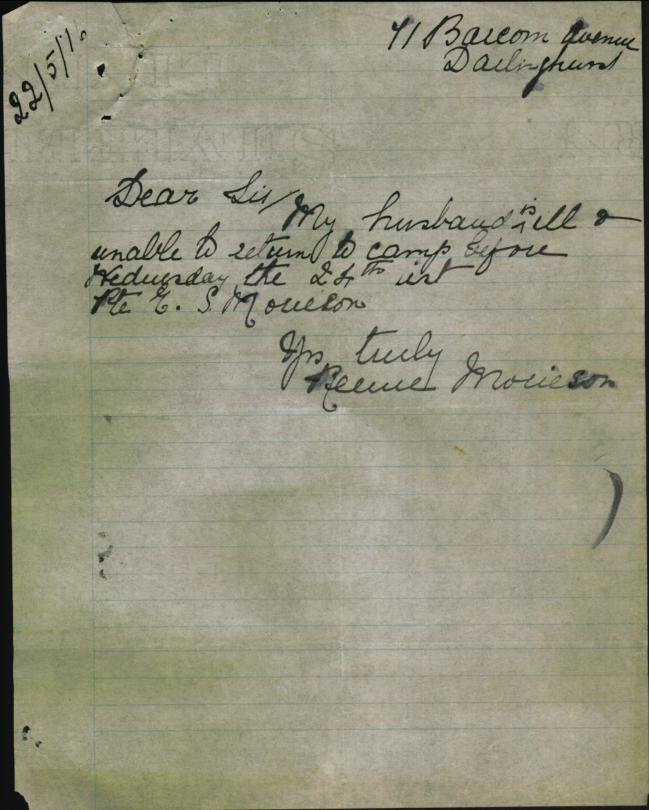 22/5/16
71 Barcom Avenue
Darlinghurst
Dear Sir/
My husband is ill &
unable to return to camp before
Wednesday the 24th ist
Pte E. S. Morieson
Yrs truly
Reenie Morieson